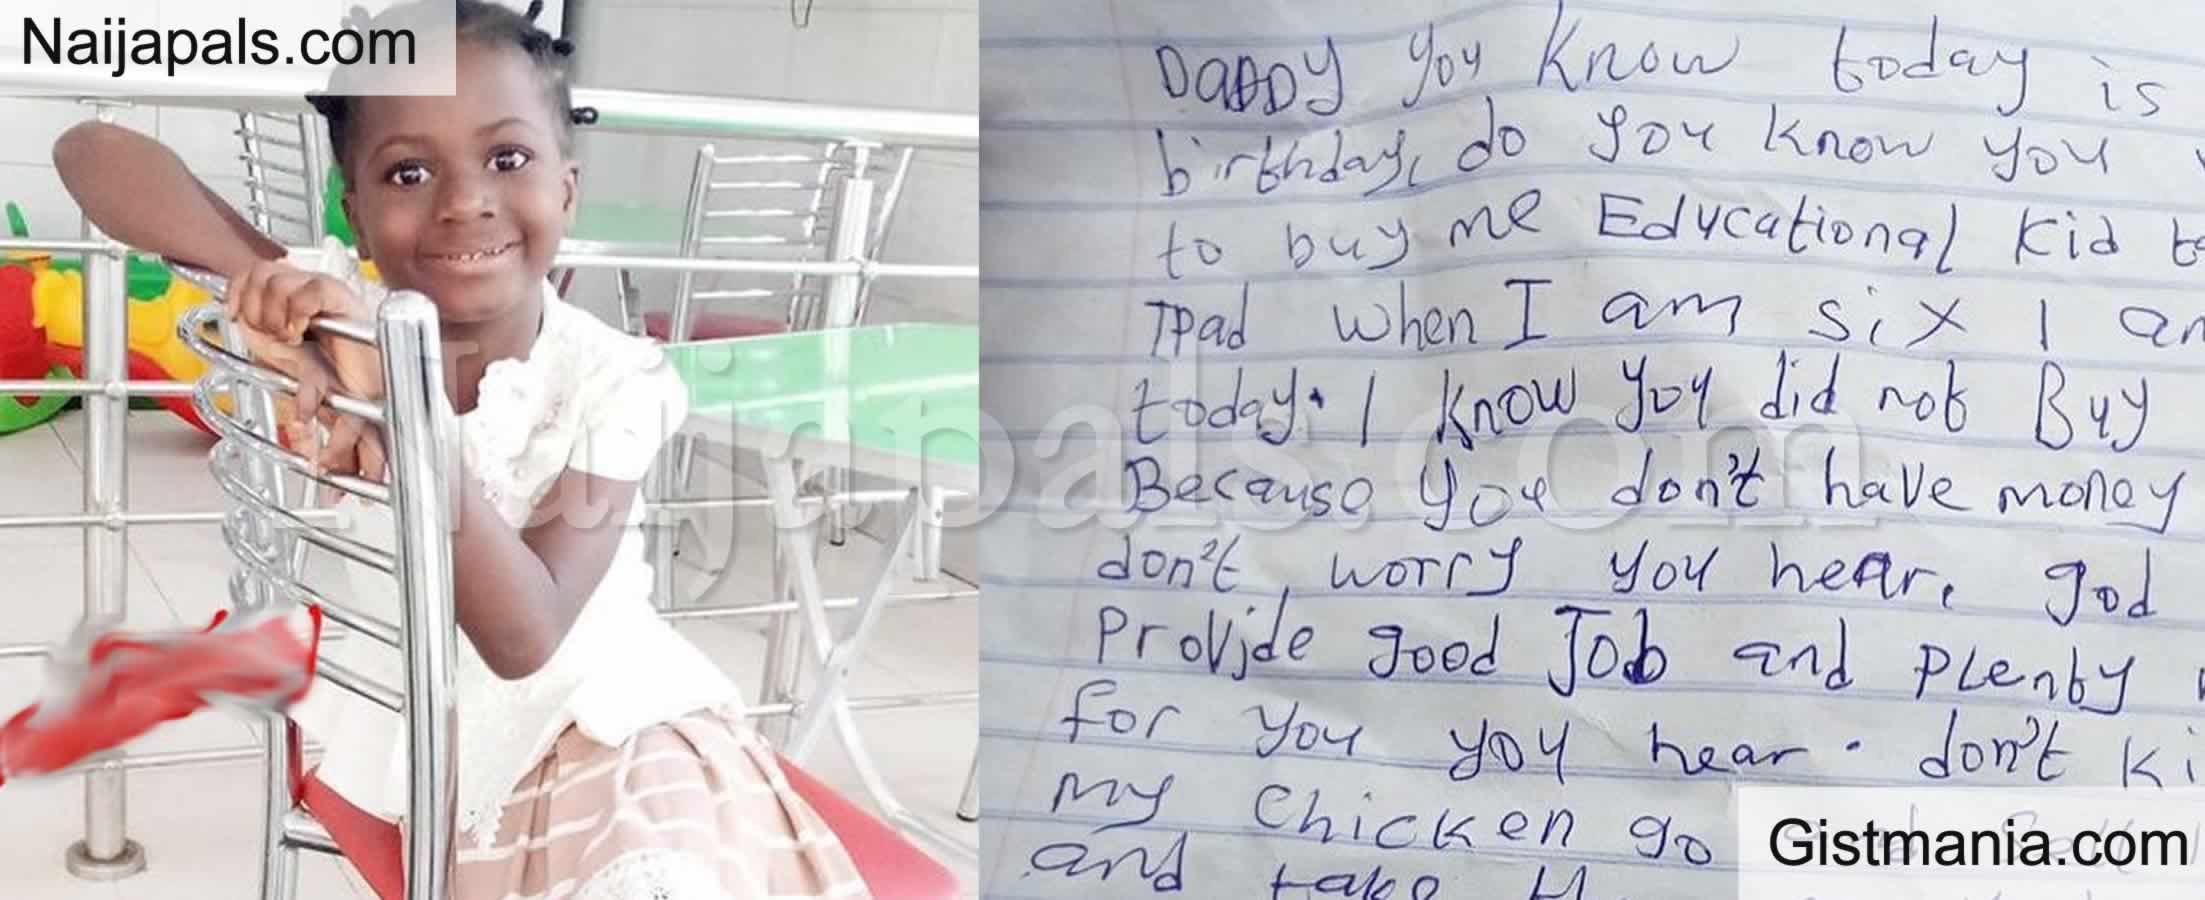 Naijapals.com
DaDDy you Know today is
birthday, do you Know you
to buy me Educational Kid
IPad when I am six I am
today. I Know you did not Buy
Because you don't have money
don't, worry you hear, god
Provide good Job and plenty
for you you hear. don't
my Chicken go
and take
Naijapals.com
Gistmania.com